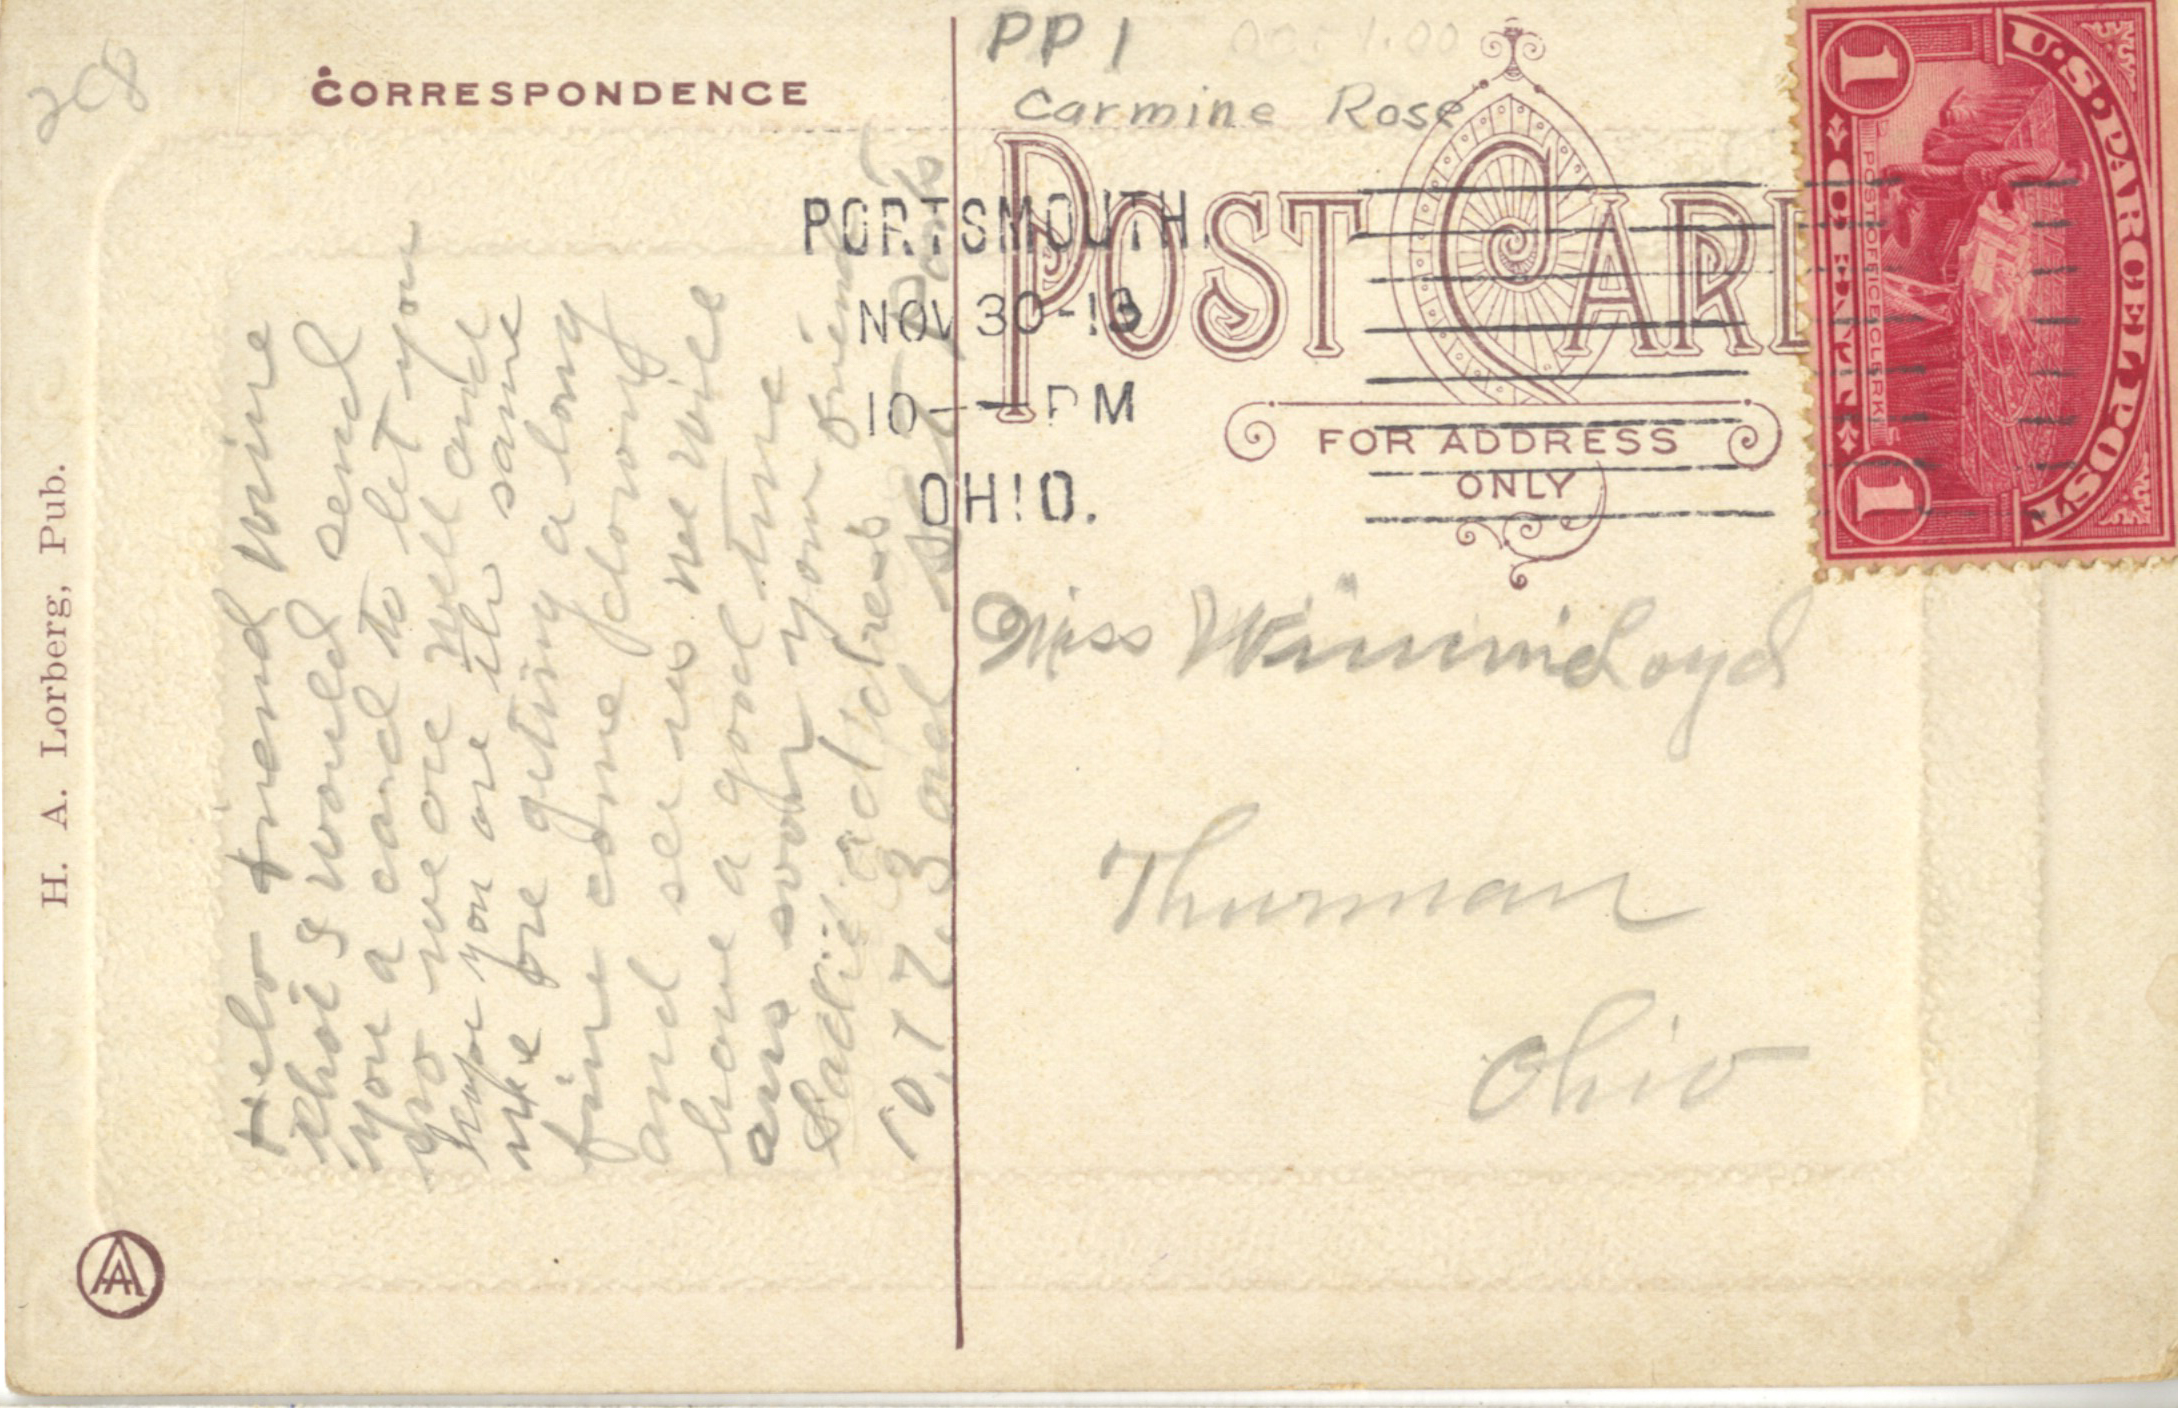 208
CORRESPONDENCE
PP 1
Carmine Rose
POST CARD
FOR ADDRESS
ONLY
PORTSMOUTH,
NOV 30-13
10 — PM
OHIO.
U.S. PARCEL POST
POST OFFICE CLERK
1
1
Helo friend Winne
thot I would send
you a card to let you
no we are well and
hope you are the same
we are geting a long
fine come down
and see us we will
have a good time
ans soon your friend
Sadie address
1017. 3 and st Ports
Miss Winnie Loyd
Thurman
Ohio
H. A. Lorberg, Pub.